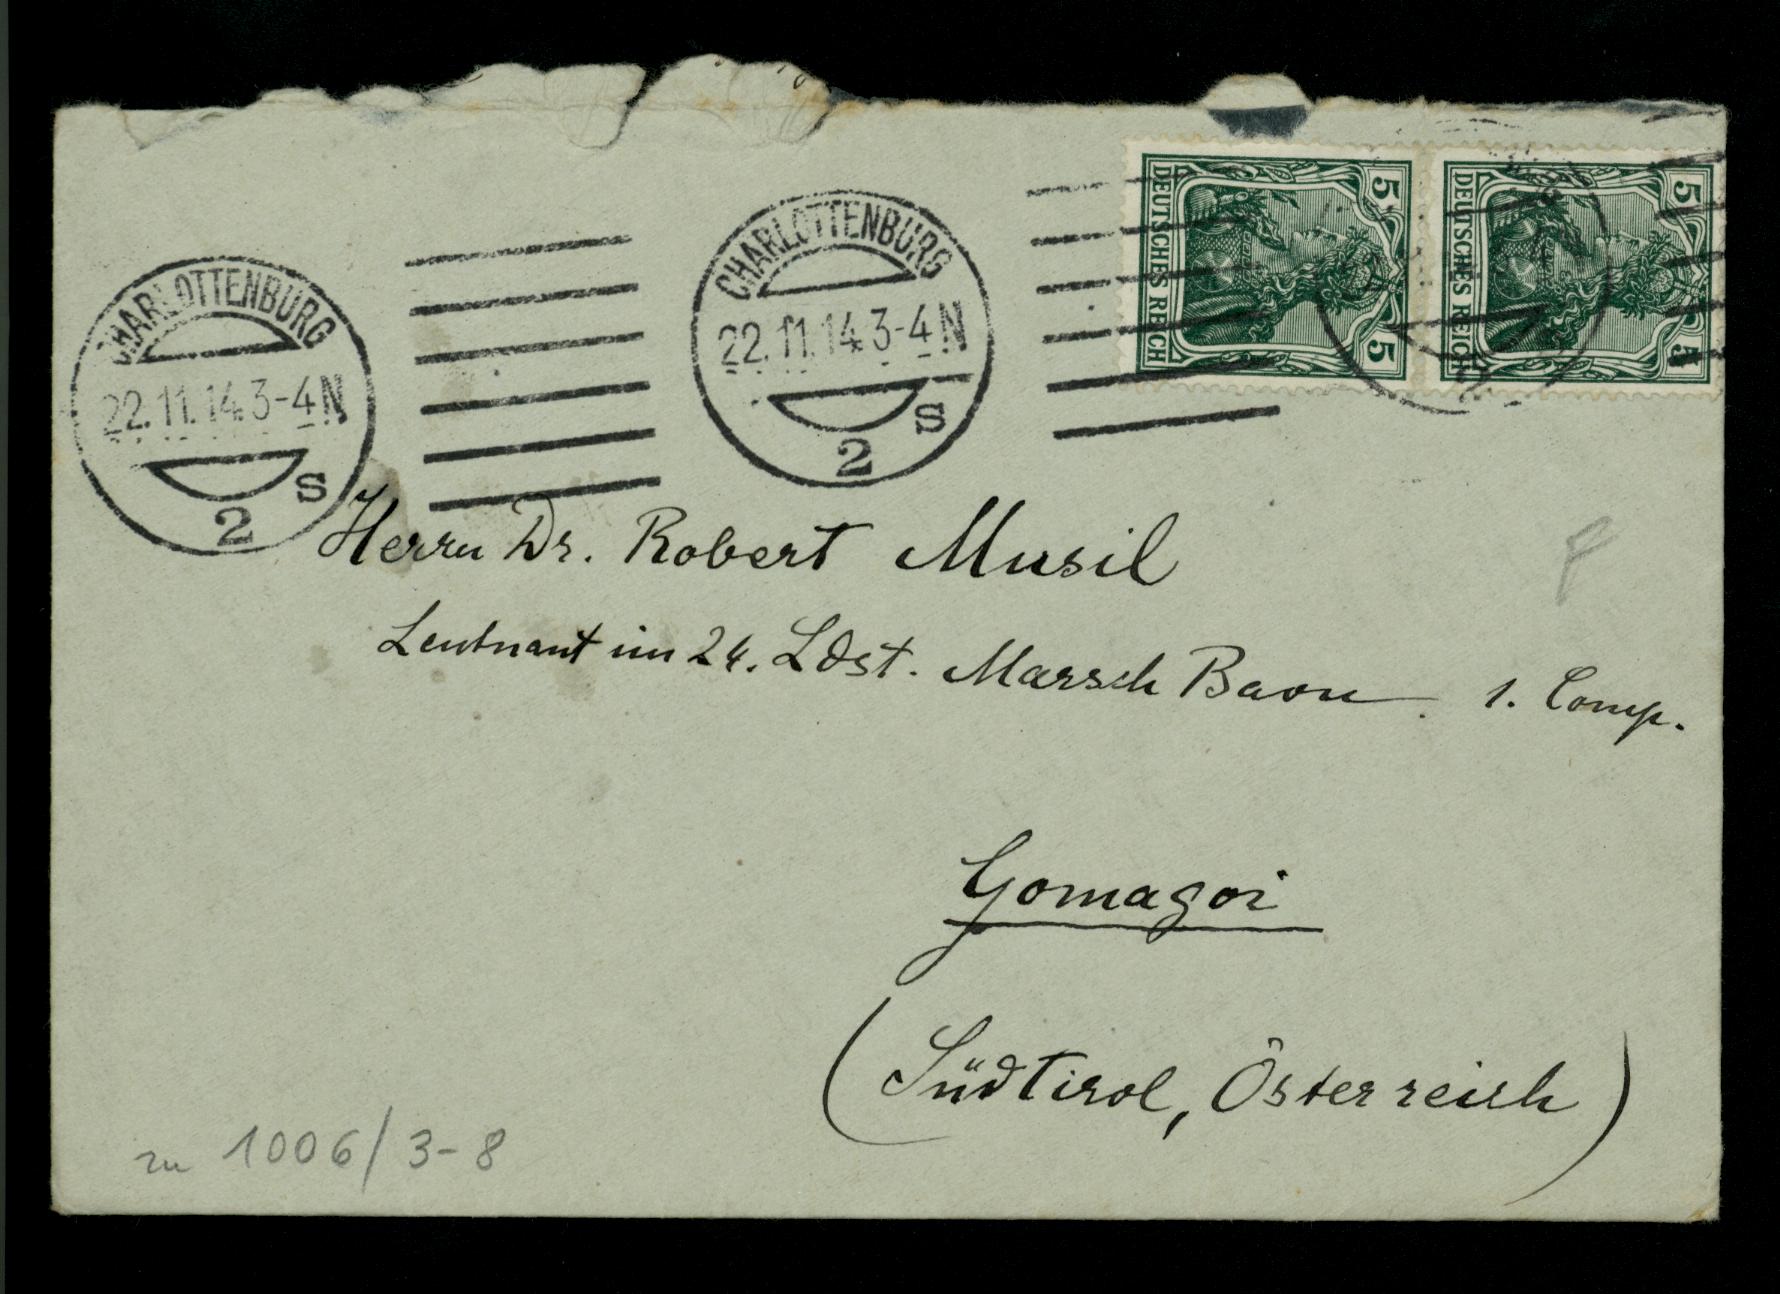 CHARLOTTENBURG
22.11.14.3-4N
2 S
CHARLOTTENBURG
22.11.14.3-4N
2 S
5 DEUTSCHES REICH 5
5 DEUTSCHES REICH 5
Herrn Dr. Robert Musil
Leutnant im 24. Ldst. Marsch Baon 1. Comp.
Gomagoi
(Südtirol, Österreich)
zu 1006/3-8